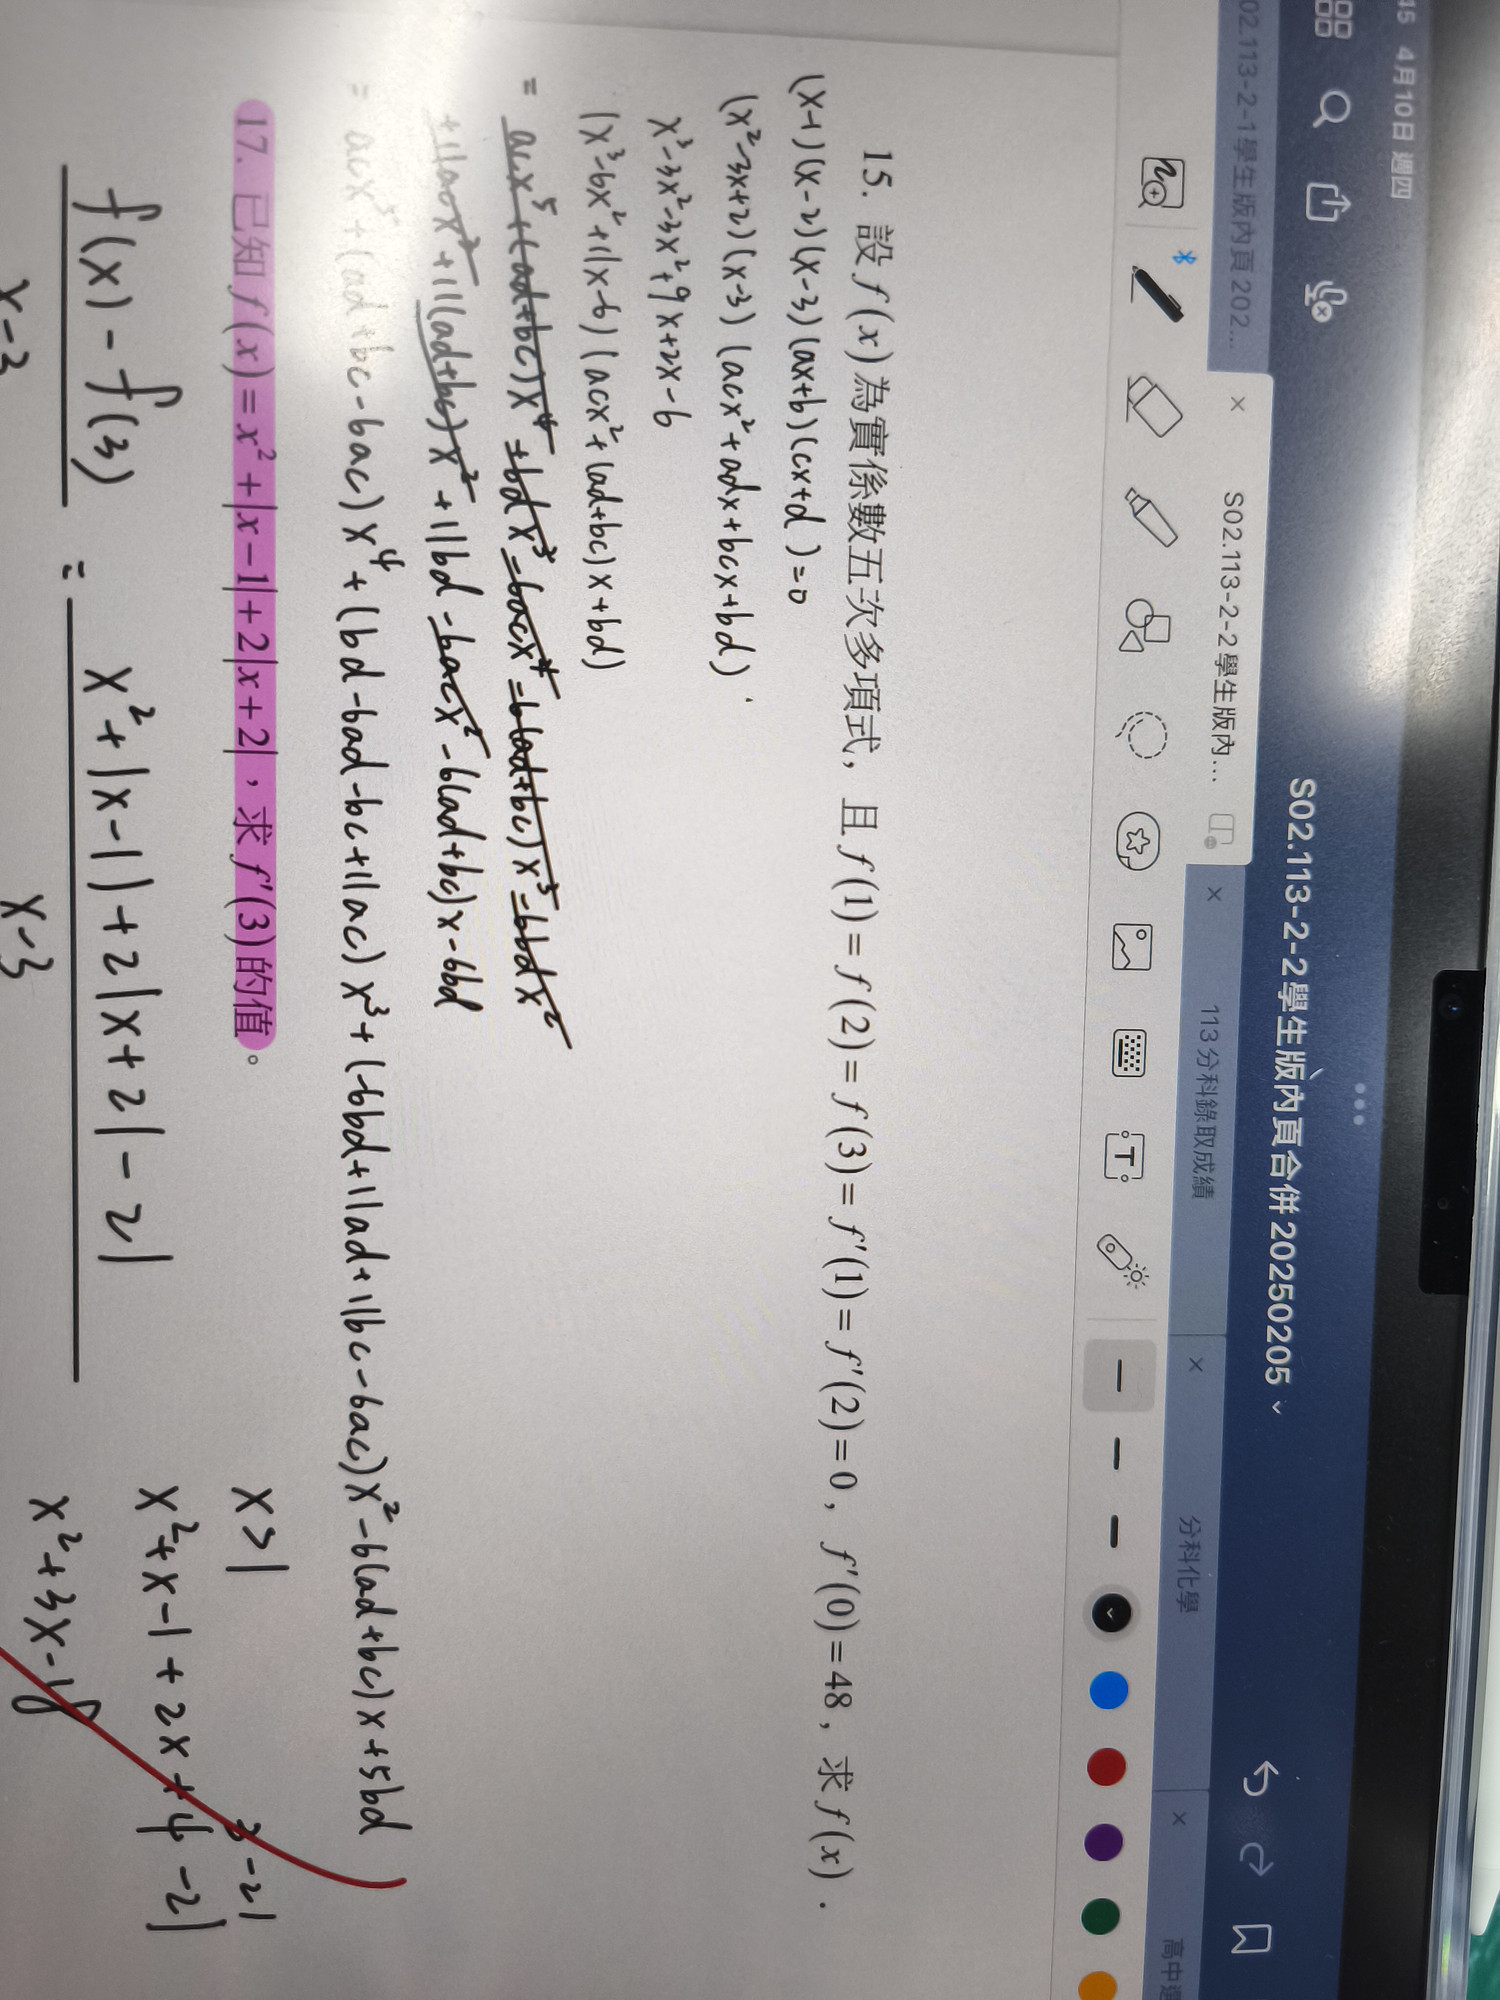 45 4月10日 週四
S02.113-2-2學生版內頁合併20250205
02.113-2-1學生版內頁202...
× S02.113-2-2學生版內...
× 113分科錄取成績
× 分科化學
× 高中
15. 設 f(x) 為實係數五次多項式, 且 f(1)=f(2)=f(3)=f'(1)=f'(2)=0, f'(0)=48, 求 f(x).
(x-1)(x-2)(x-3)(ax+b)(cx+d)=0
(x²-3x+2)(x-3)(acx²+adx+bcx+bd)
x³-3x²-3x²+9x+2x-6
(x³-6x²+11x-6)(acx²+(ad+bc)x+bd)
= acx⁵+(ad+bc)x⁴+bdx³-6acx⁴-6(ad+bc)x³-6bdx²
+11acx³+11(ad+bc)x²+11bd-6acx²-6(ad+bc)x-6bd
= acx⁵+(ad+bc-6ac)x⁴+(bd-6ad-bc+11ac)x³+(-6bd+11ad+11bc-6ac)x²-6(ad+bc)x+5bd
17. 已知 f(x)=x²+|x-1|+2|x+2|,求 f'(3)的值。
f(x)-f(3)
x-3
=
x²+|x-1|+2|x+2|-21
x-3
x>1
x²+x-1+2x+4-21
x²+3x-18